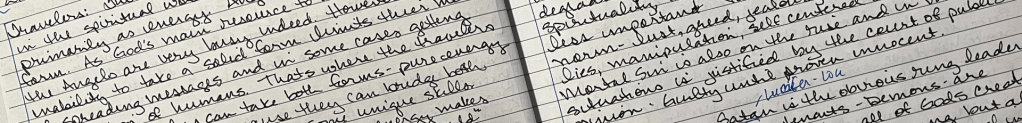 Travelers: The
in the spiritual w
primarily as energy
form. As God's main resource to
the Angels are very busy indeed. However
inability to take a solid form limits their
spreading messages and in some cases getting
of humans. Thats where the travelers
can take both forms - pure energy
cause they can bridge both
unique skills.
makes
degrad
spirituality
less important
norm - lust, greed, jealou
lies, manipulation, self centered
Mortal Sin is also on the rise and in
situations is justified by the court of public
opinion. Guilty until proven innocent.
Lucifer - Lou
Satan is the obvious ring leader
Demons - are
all of Gods creat
but a